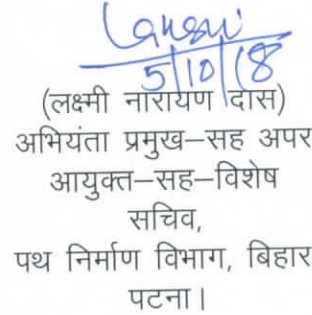 5/10/18
(लक्ष्मी नारायण दास)
अभियंता प्रमुख–सह अपर
आयुक्त–सह–विशेष
सचिव,
पथ निर्माण विभाग, बिहार
पटना।